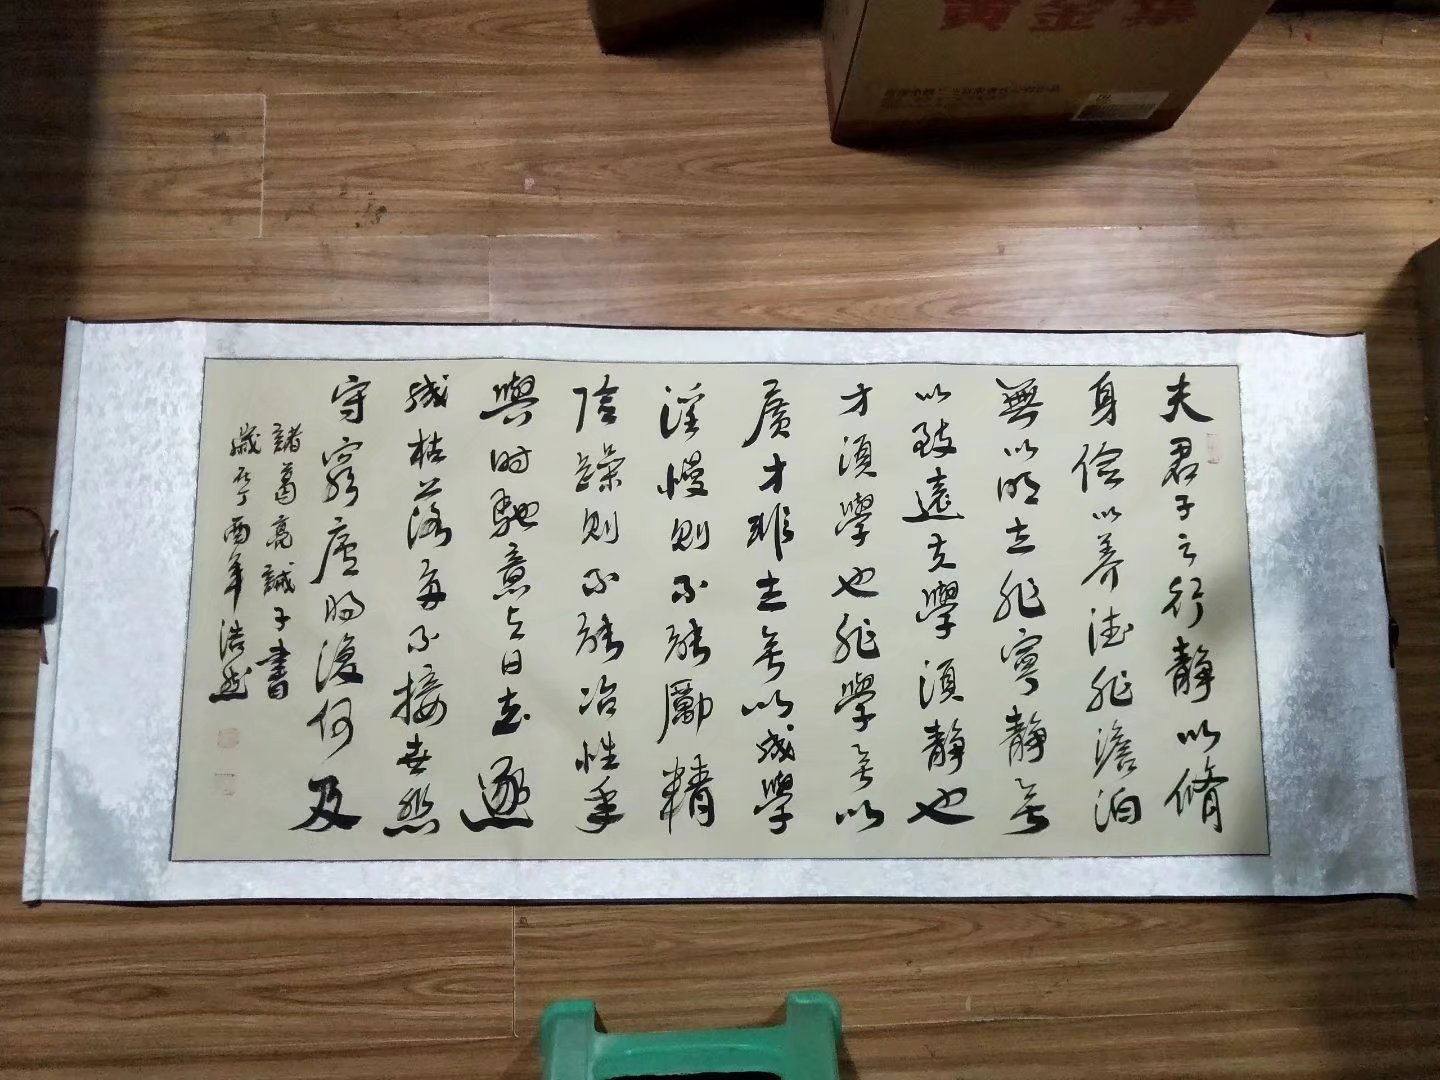 夫君子之行靜以脩
身儉以養德非澹泊
無以明志非寧靜無
以致遠夫學須靜也
才須學也非學無以
廣才非志無以成學
淫慢則不能勵精
險躁則不能冶性年
與時馳意與日去遂
成枯落多不接世悲
守窮廬將復何及
諸葛亮誡子書
歲在丁酉年浩然
黄金葉